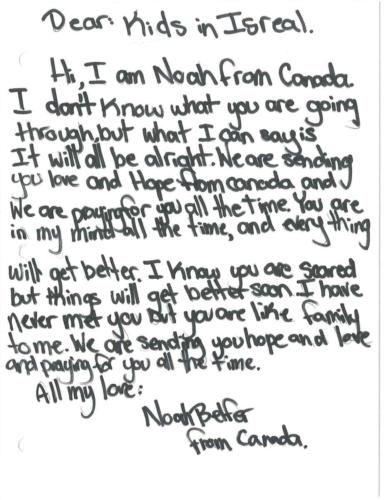 Dear: Kids in Isreal.
Hi, I am Noah from Canada
I don't know what you are going
through, but what I can say is
It will all be alright. We are sending
you love and Hope from canada and
We are praying for you all the time. You are
in my mind all the time, and every thing
will get better. I know you are scared
but things will get better soon. I have
never met you but you are like family
to me. We are sending you hope and love
and praying for you all the time.
All my love:
Noah Belfer
from Canada.